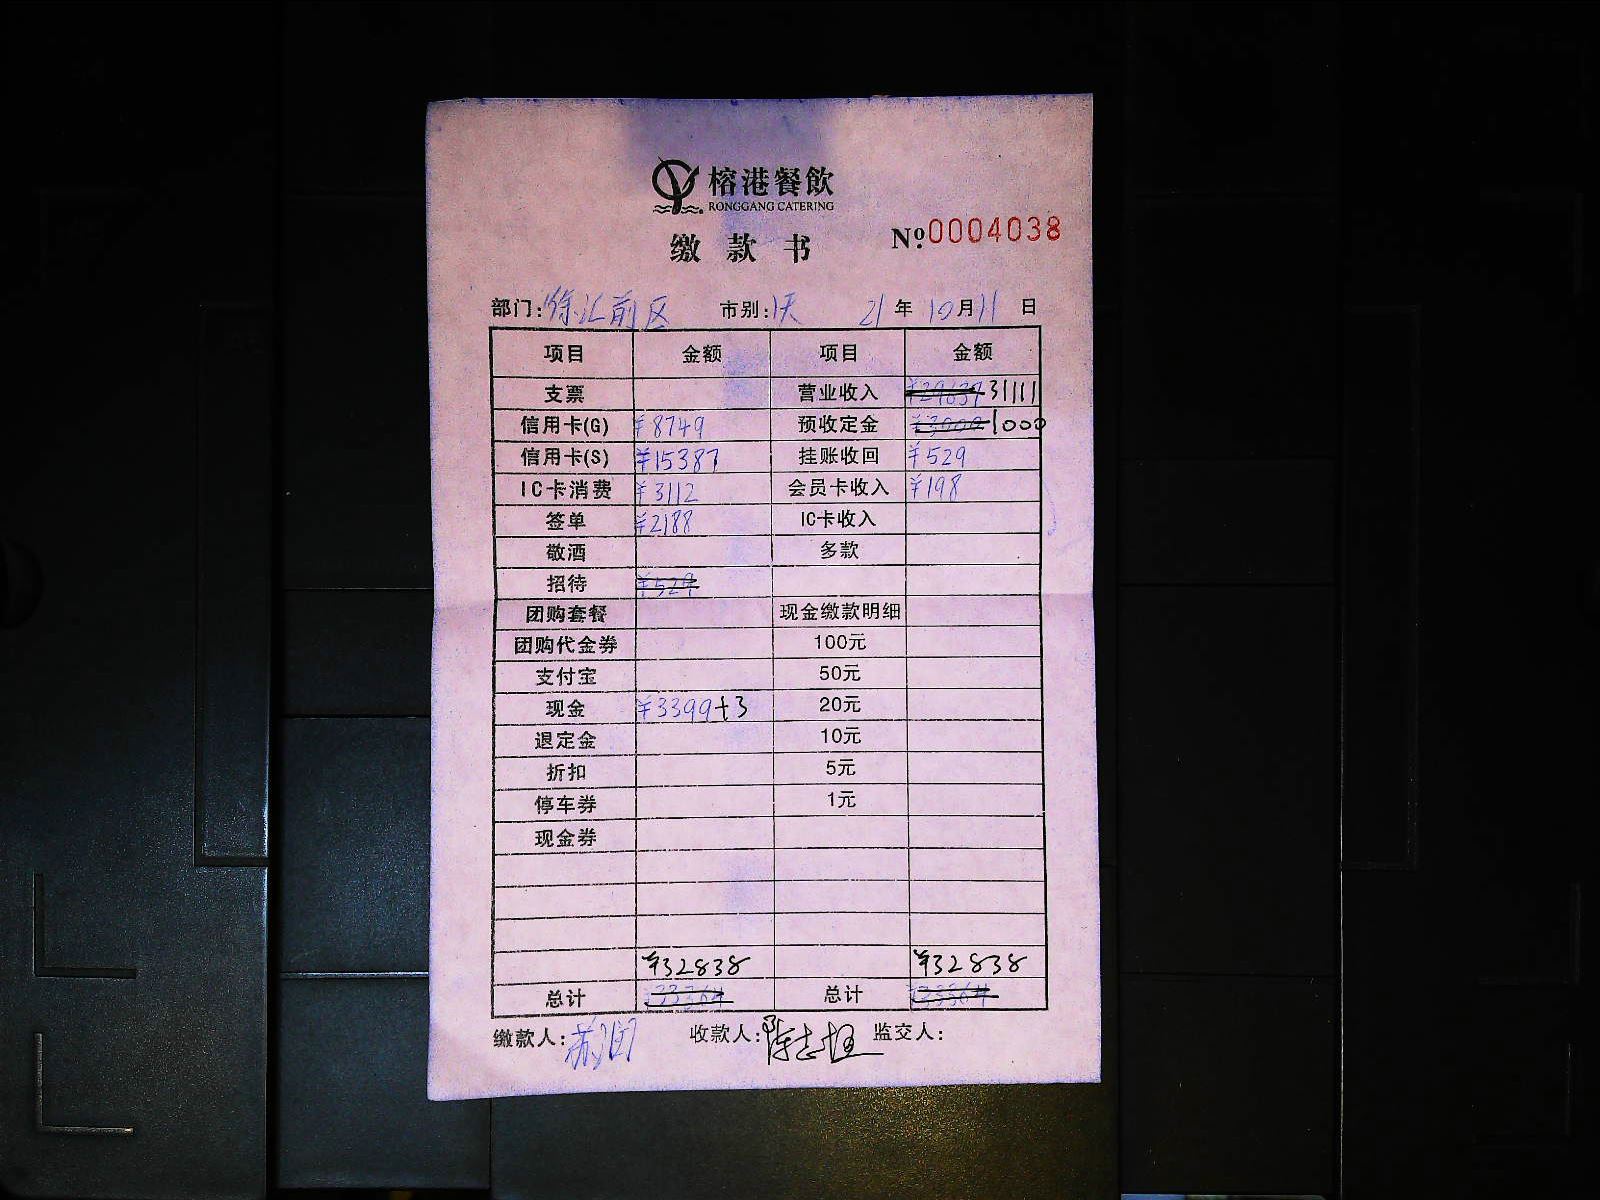 榕港餐飲
RONGGANG CATERING
缴款书 №:0004038
部门:徐汇前区 市别:1天 21年10月11日
项目 金额 项目 金额
支票 营业收入 ¥29637 31111
信用卡(G) ¥8749 预收定金 ¥3000 1000
信用卡(S) ¥15387 挂账收回 ¥529
IC卡消费 ¥3112 会员卡收入 ¥198
签单 ¥2188 IC卡收入
敬酒 多款
招待 ¥529
团购套餐 现金缴款明细
团购代金券 100元
支付宝 50元
现金 ¥3399+3 20元
退定金 10元
折扣 5元
停车券 1元
现金券
¥32838 ¥32838
总计 ¥33364 总计 ¥33364
缴款人:苏润 收款人:陈志恒 监交人: